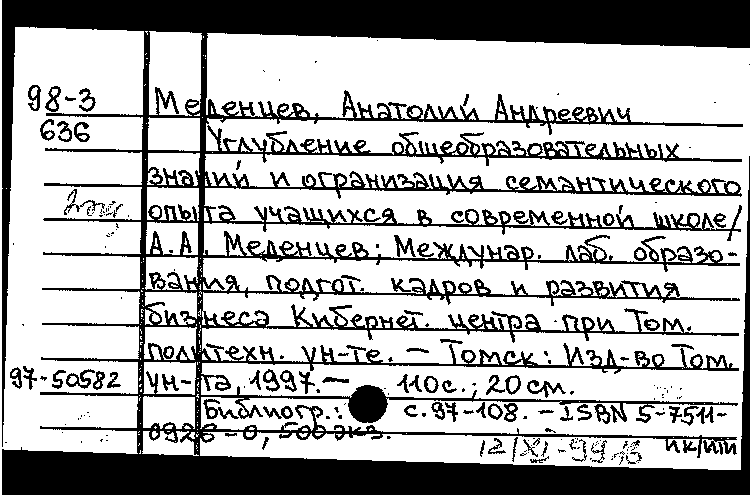 98-3
636
Меденцев, Анатолий Андреевич
Углубление общеобразовательных
знаний и огранизация семантического
опыта учащихся в современной школе/
А.А. Меденцев; Междунар. лаб. образо-
вания, подгот. кадров и развития
бизнеса Кибернет. центра при Том.
политехн. ун-те. — Томск: Изд-во Том.
97-50582 ун-та, 1997. — 110с.; 20см.
Библиогр.: с. 97-108. - ISBN 5-7511-
0926-0, 500 экз.
12/XI-99